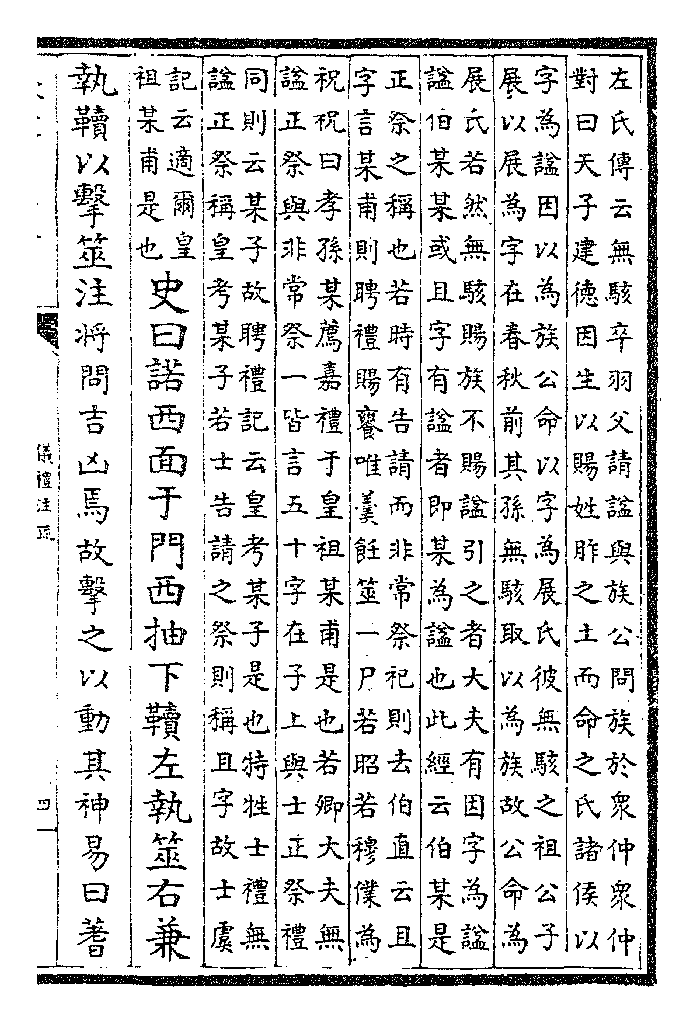 左氏傳云無駭卒羽父請諡與族公問族於衆仲衆仲
對曰天子建德因生以賜姓胙之土而命之氏諸侯以
字為諡因以為族公命以字為展氏彼無駭之祖公子
展以展為字在春秋前其孫無駭取以為族故公命為
展氏若然無駭賜族不賜諡引之者大夫有因字為諡
諡伯某某或且字有諡者即某為諡也此經云伯某是
正祭之稱也若時有告請而非常祭祀則去伯直云且
字言某甫則聘禮賜饔唯羹飪筮一尸若昭若穆僕為
祝祝曰孝孫某薦嘉禮于皇祖某甫是也若卿大夫無
諡正祭與非常祭一皆言五十字在子上與士正祭禮
同則云某子故聘禮記云皇考某子是也特牲士禮無
諡正祭稱皇考某子若士告請之祭則稱且字故士虞
記云適爾皇
祖某甫是也
史曰諾西面于門西抽下韇左執筮右兼
執韇以擊筮注將問吉凶焉故擊之以動其神易曰蓍
儀禮注疏
四